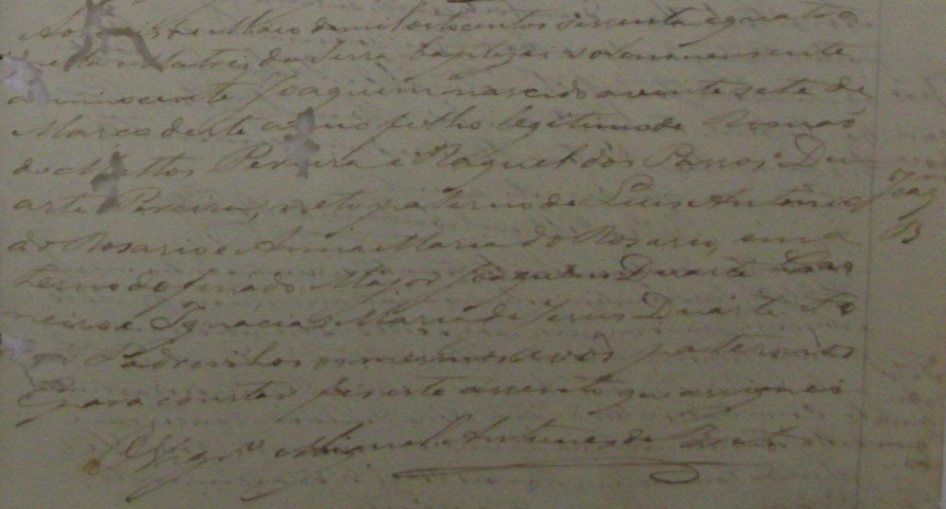 de Maio de mil oitocentos sessenta e quatro
nesta Matriz da Serra baptizei solemnemente
o innocente Joaquim nascido a vinte sete de
Março deste anno filho legitimo de
de Mattos Pereira e Raquel dos Passos Du
arte Pereira, neto paterno de Luis Antonio
do Rosario e Anna Maria do Rosario, e ma
terno do finado Major Joaquim Duarte Car
neiro e Ignacia Maria de Jesus Duarte
Padrinhos os mesmos avós paternos
E para constar fiz este assento que assignei
O Vigr.º Miguel Antunes de Brito
Joaq
B